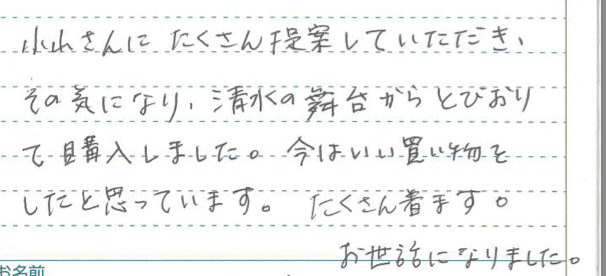 小山さんに たくさん提案していただき、
その気になり、清水の舞台からとびおり
て購入しました。今はいい買い物を
したと思っています。 たくさん着ます。
お世話になりました。
お名前